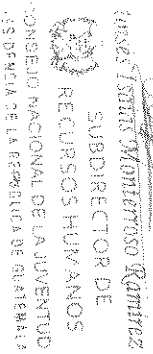 Isaías Monterroso Ramírez
SUBDIRECTOR DE
RECURSOS HUMANOS
CONSEJO NACIONAL DE LA JUVENTUD
PRESIDENCIA DE LA REPÚBLICA DE GUATEMALA